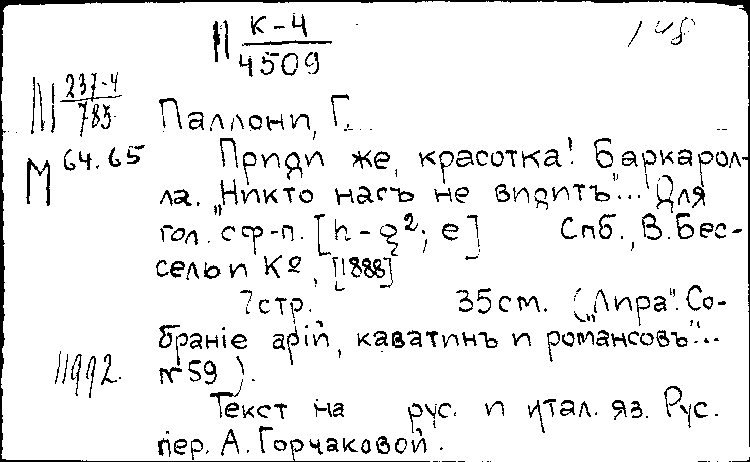 П К-4
4509
148
Ш 237-4
785
М 64.65
Паллони, Г.
Приди же, красотка! Баркарол-
ла. „Никто насъ не видитъ"... Для
гол. с ф-п. [h-g²; e] Спб., В. Бес-
сель и К⁰, [1888]
7 стр. 35 см. („Лира". Со-
браніе арій, каватинъ и романсовъ"...
№ 59).
11992.
Текст на рус. и итал. яз. Рус.
пер. А. Горчаковой.